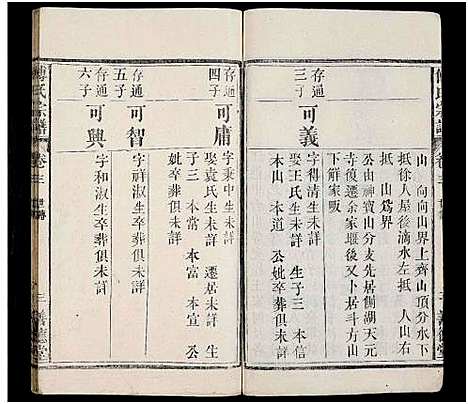 山 向向山界上齊山頂分水下
抵徐人屋後滴水左抵 人山右
抵 山為界
存通三子
可義
字得清生卒葬俱未詳
娶王氏生卒葬俱未詳 生子三
本山 本道 公妣卒葬俱未詳
公山神寶山分支先居側湖天元
寺復遷余家堰後又卜居斗方山
下解家畈
存通四子
可庸
字秉中生卒葬俱未詳
娶袁氏生卒葬俱未詳 遷居未詳 生
子三 本常 本富 本宣 公
妣卒葬俱未詳
存通五子
可智
字祥淑生卒葬俱未詳
存通六子
可興
字和淑生卒葬俱未詳
傅氏宗譜
卷三
世譜
善德堂
傅氏宗譜
卷三
善德堂